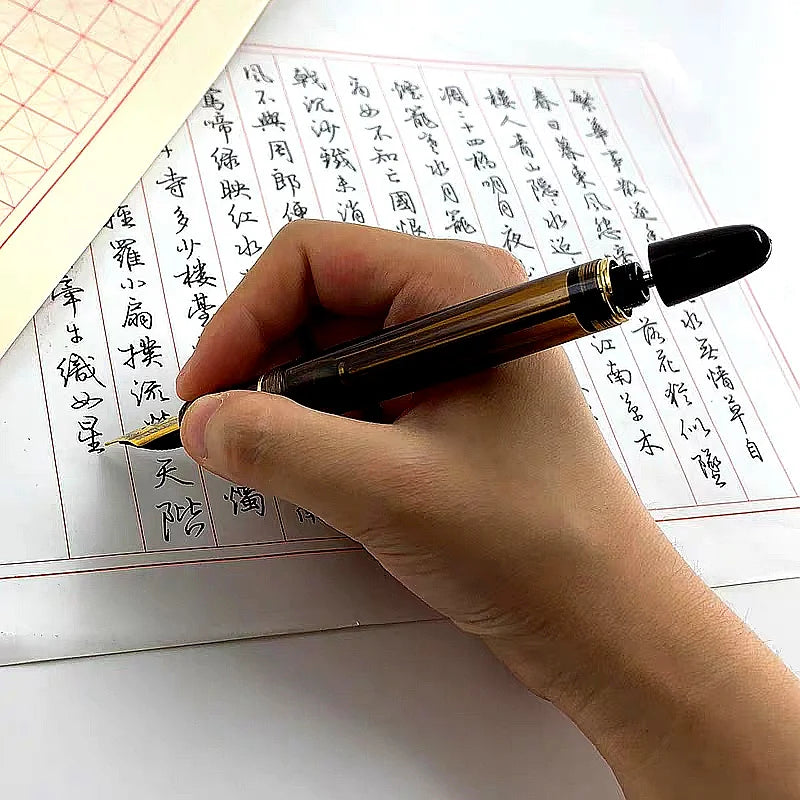 繁華事散逐水无情草自
春日暮東風怨落花犹似墜
楼人青山隐〻水迢江南草木
凋二十四橋明月夜
煙籠寒水月籠
商女不知亡國恨
戟沉沙鐵未消
風不與周郎便
鶯啼绿映红水
寺多少楼臺燭
羅小扇撲流天階
牽牛織女星